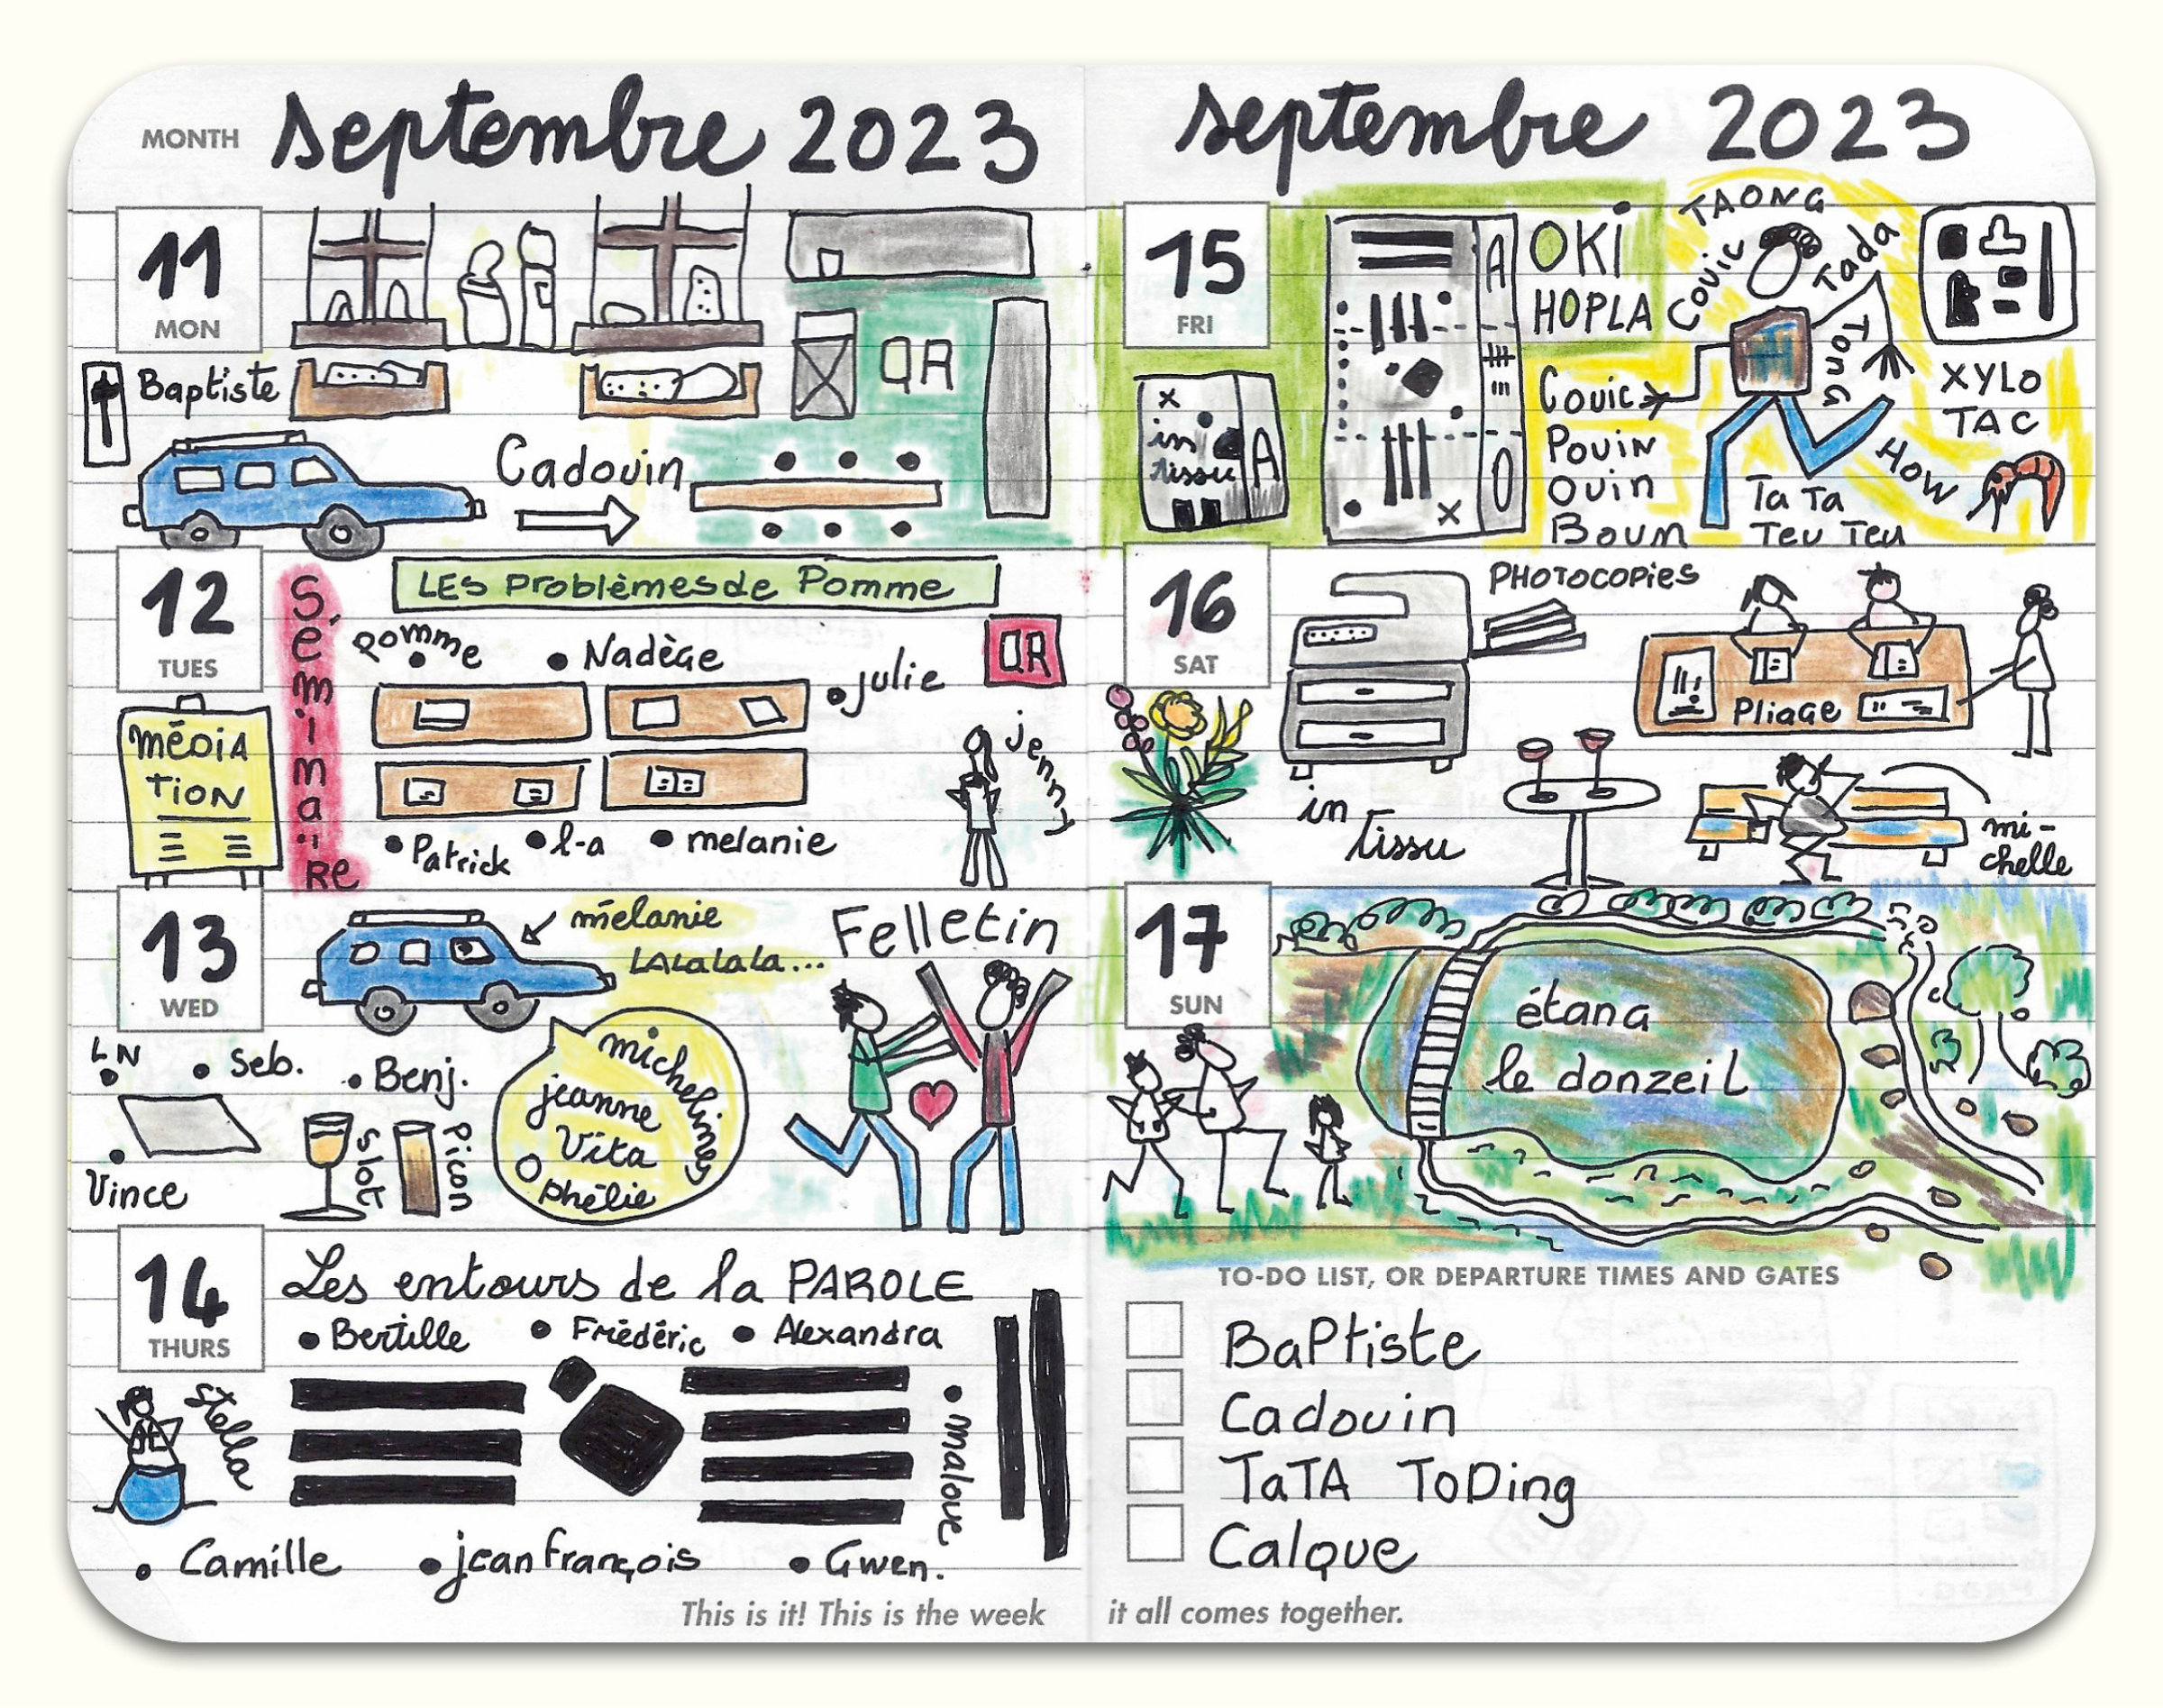 MONTH septembre 2023
11
MON
Baptiste
QR
Cadouin
12
TUES
LES Problèmes de Pomme
Séminaiire
Pomme
Nadège
julie
QR
MÉDIA
TION
jenny
Patrick
l-a
melanie
13
WED
mélanie
LALalala...
Felletin
LN
Seb.
Benj.
Vince
Slot
Picon
michelines
jeanne
Vita
Ophélie
14
THURS
Les entours de la PAROLE
Bertille
Frédéric
Alexandra
Stella
malove
Camille
jean françois
Gwen.
This is it! This is the week
septembre 2023
15
FRI
in
tissu
A
A
O
OKi
HOPLA
Couic
POUIN
OUIN
BOUM
TAONG
COUIC
Tada
TOUNG
Ta Ta
Teu Teu
HOW
XYLO
TAC
16
SAT
PHOTOCOPIES
Pliage
in
tissu
mi-
chelle
17
SUN
étang
le donzeil
TO-DO LIST, OR DEPARTURE TIMES AND GATES
BaPtiste
Cadouin
TaTA ToDing
Calque
it all comes together.